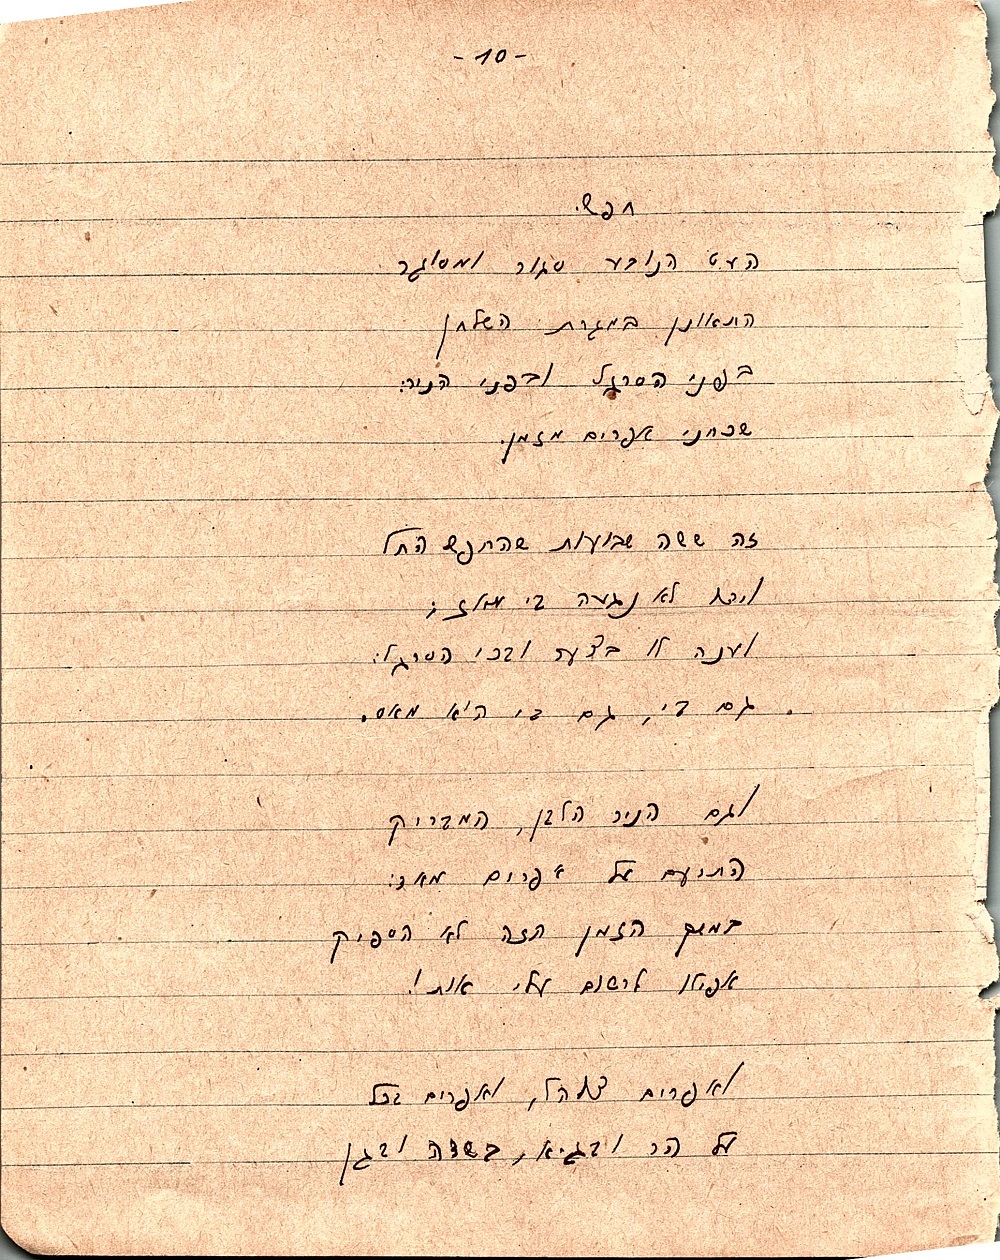 - 10 -
חפש.
העט הנובע סגור ומסוגר
התאונן במגרת השלחן
בפני הסרגל ובפני הניר:
שכחני אפרים מזמן.
זה ששה שבועות שהחפש החל
ויד לא נגעה בי מאז;
וענה לו בצער ובכי הסרגל:
גם בי, גם בי הוא מאס.
וגם הניר הלבן, המבריק
התרעם על אפרים מאד:
במשך הזמן הזה לא הספיק
אפילו לרשום עלי אות!
ואפרים צוהל, ואפרים גבל
על הר ובגיא, בשדה ובגן